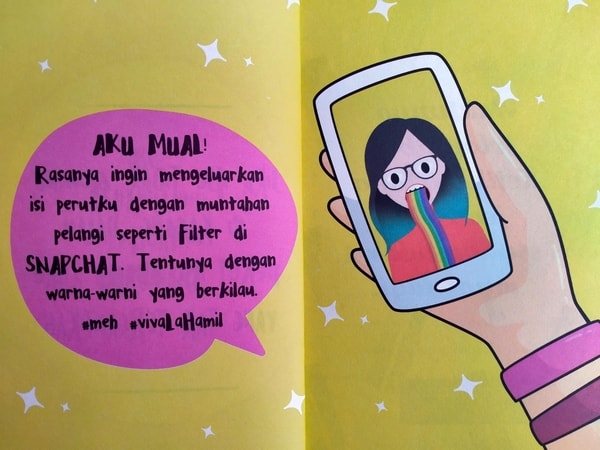 AKU MUAL!
Rasanya ingin mengeluarkan
isi perutku dengan muntahan
pelangi seperti Filter di
SNAPCHAT. Tentunya dengan
warna-warni yang berkilau.
#meh #vivaLaHamil